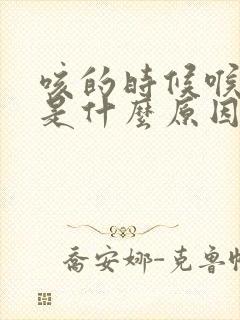 咳的時候喉
是什麼原因
喬安娜-克魯